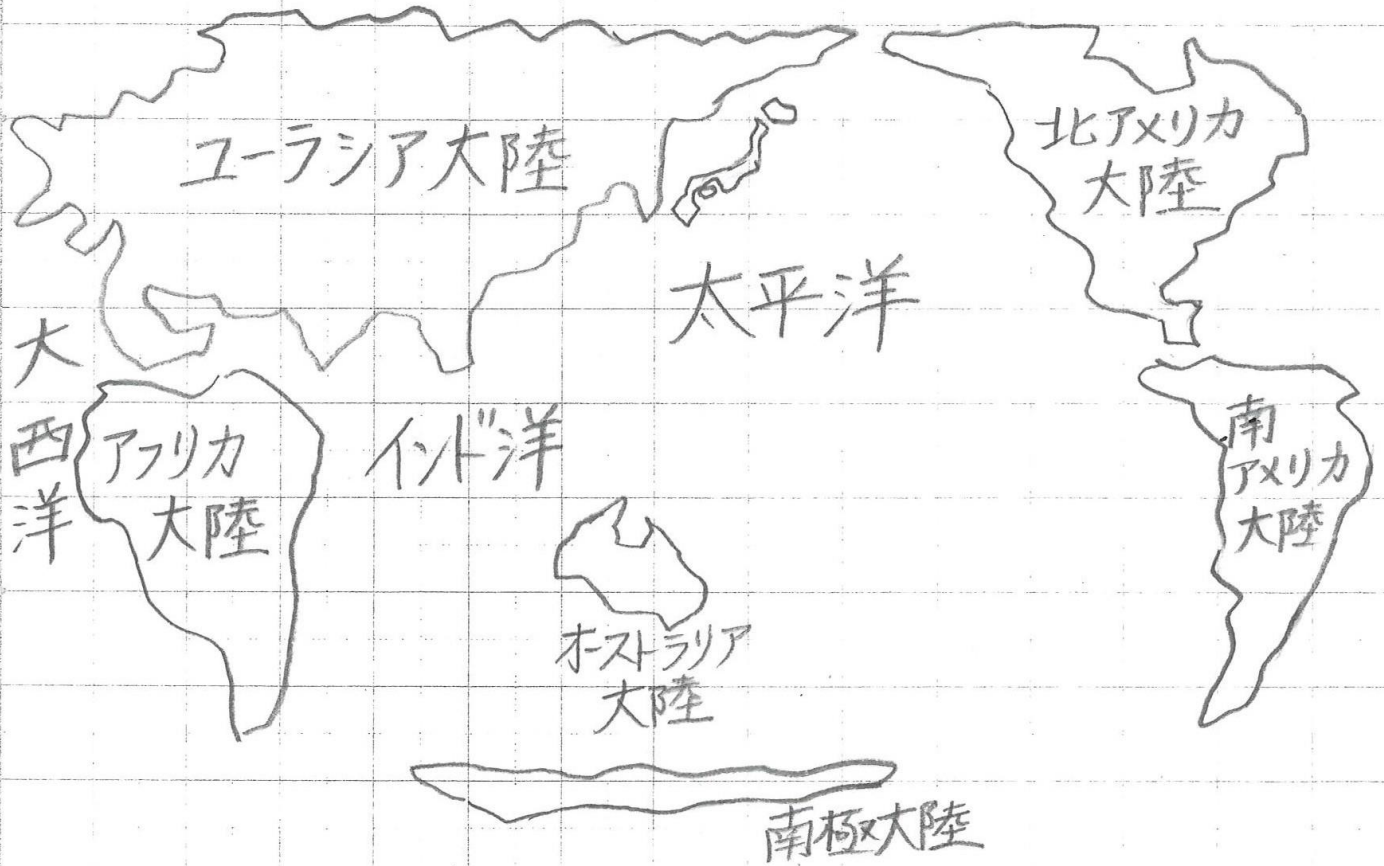 ユーラシア大陸
北アメリカ
大陸
太平洋
大西洋
アフリカ
大陸
インド洋
南
アメリカ
大陸
オーストラリア
大陸
南極大陸